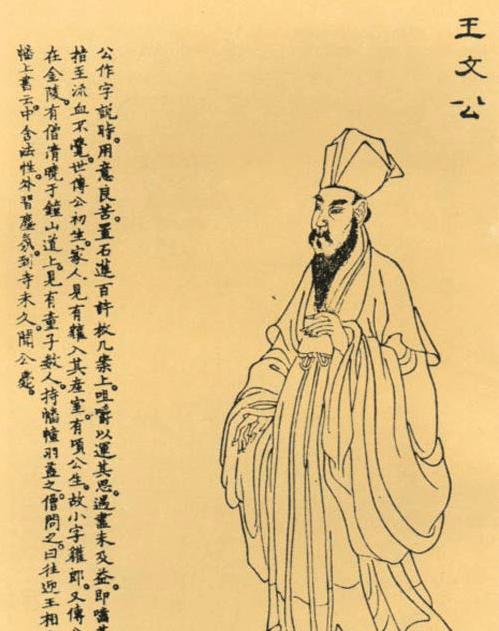 王文公
公作字說時。用意良苦。置石蓮百許枚几案上。咀嚼以運其思。遇盡未及益。即嚙其
指至流血不覺。世傳公初生。家人見有獾入其產室。有頃公生。故小字獾郎。又傳公
在金陵。有僧清曉于鐘山道上。見有童子數人。持幡幢羽蓋之。僧問之。曰往迎王相
幡上書云。中含法性。外習塵氛。到寺未久。聞公薨。